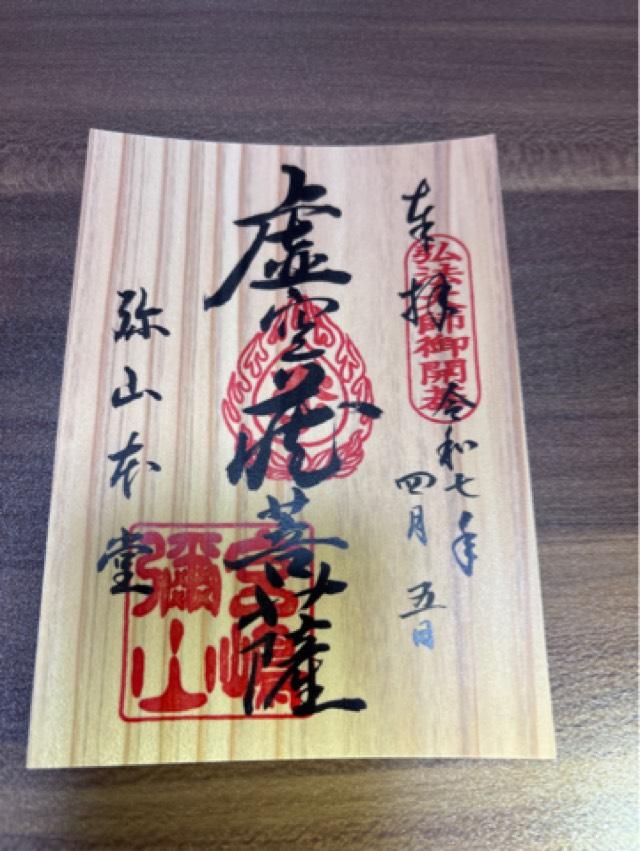 奉拝
弘法大師御開基
令和七年
四月五日
虚空蔵菩薩
弥山本堂
宮嶋
彌山